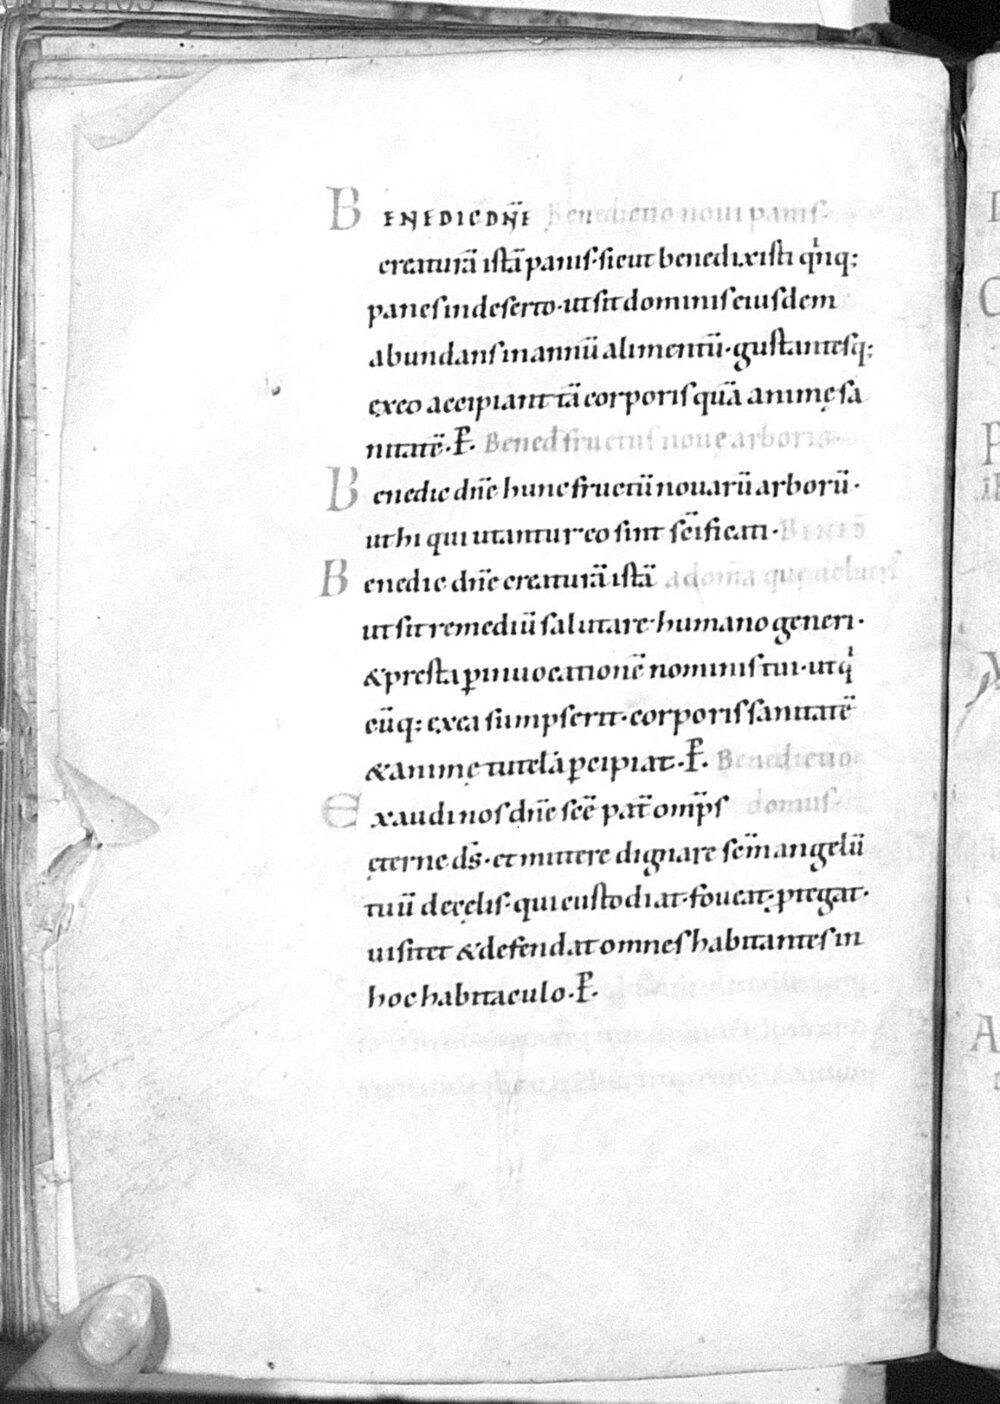 BENEDIC DN̄E Benedictio noui panis·
creaturā istā panis· sicut benedixisti q̇nq;
panes in deserto· ut sit dominis eiusdem
abundans in annū alimentū· gustantesq;
ex eo accipiant tā corporis quā animę sa
nitatē· P̄· Bened̄ fructus noue arboris·
Benedic dn̄e hunc fructū nouarū arborū·
ut hi qui utantur eo sint sc̄ificati·
Benedic dn̄e creaturā istā ad om̄a que uolueris
ut sit remediū salutare· humano generi·
& presta ꝑ inuocationē nominis tui· ut q̇
cūq; ex ea sumpserit· corporis sanitatē
& animę tutelā ꝑcipiat· P̄· Benedictio
Exaudi nos dn̄e sc̄e pat̄ omp̄s domus·
ęterne ds̄· et mittere dignare sc̄m angelū
tuū de cęlis· qui custodiat· foueat· ꝓtegat·
uisitet & defendat omnes habitantes in
hoc habitaculo· P̄·